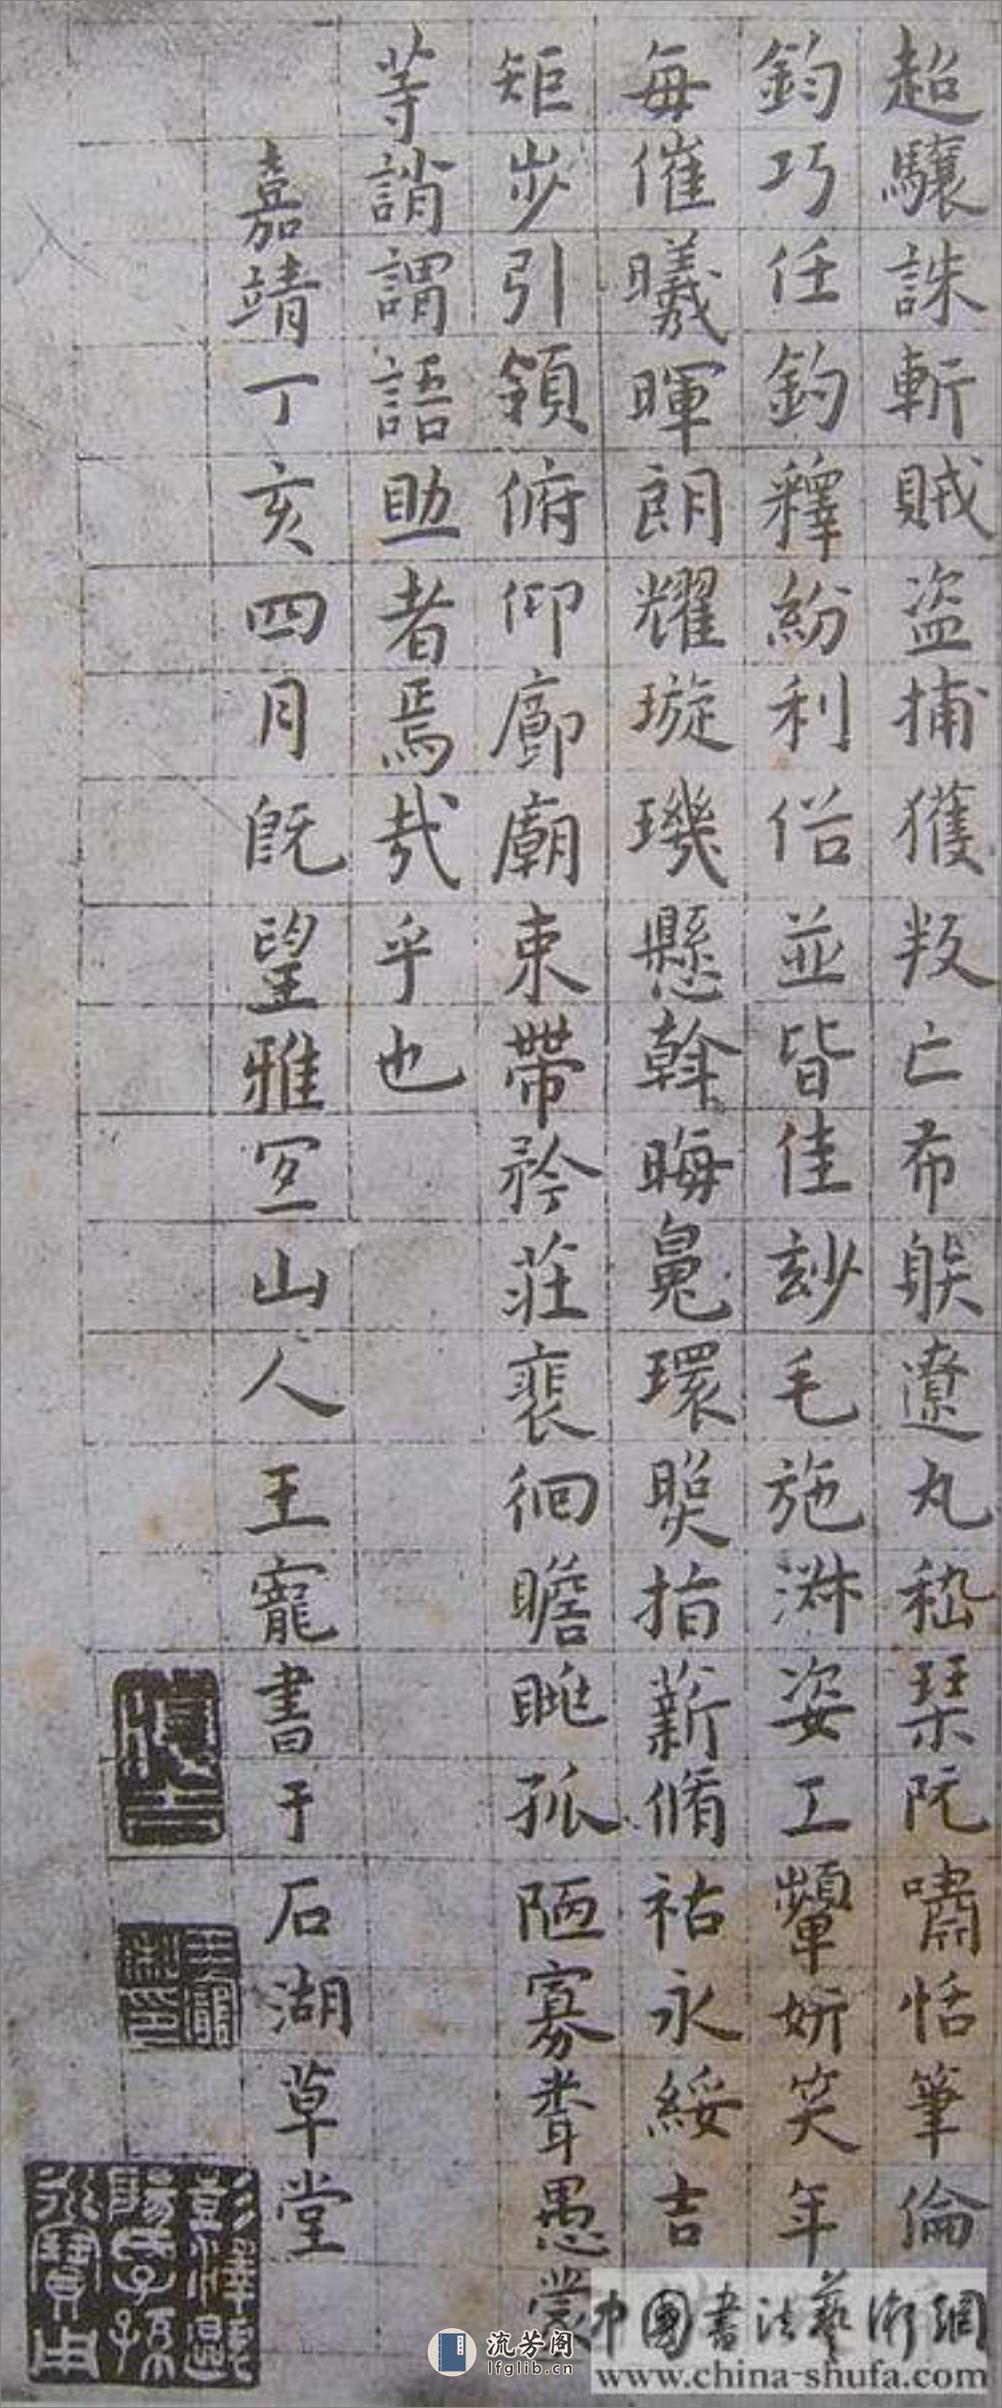 超驤誅斬賊盜捕獲叛亡布䠶遼丸嵇琹阮嘯恬筆倫
鈞巧任釣釋紛利俗並皆佳玅毛施淋姿工顰妍笑年
每催曦暉朗耀璇璣懸斡晦魄環照指薪脩祜永綏吉
矩步引領俯仰廊廟束帶矜莊裵徊瞻眺孤陋寡聞愚蒙
等誚謂語助者焉哉乎也
嘉靖丁亥四月既望雅宜山人王寵書于石湖草堂
王寵私印
流芳阁
lfglib.cn
中國書法藝術網
www.china-shufa.com